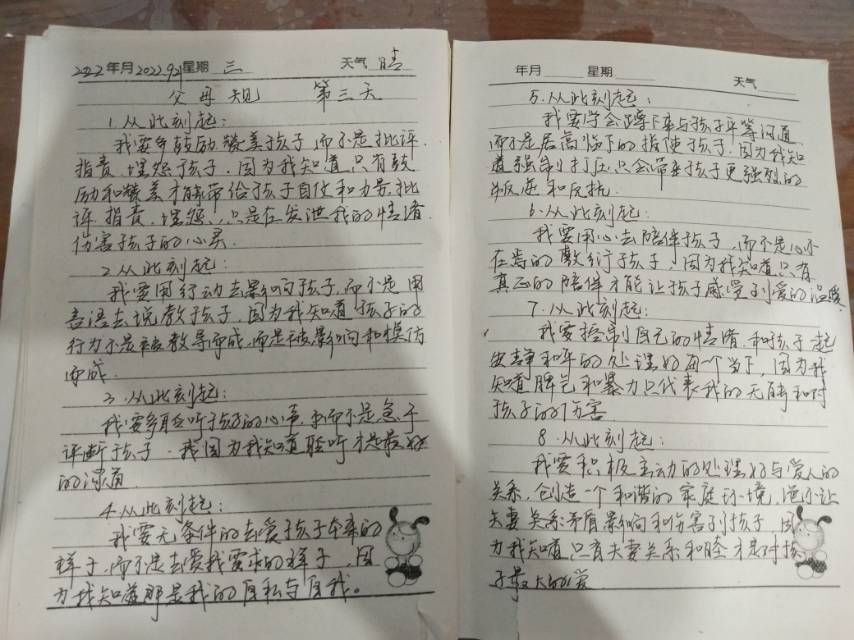 2022年月2022.9.21星期 三 天气 晴
父母规 第三天
1.从此刻起:
我要多鼓励、赞美孩子,而不是批评、
指责、埋怨孩子。因为我知道只有鼓
励和赞美才能带给孩子自信和力量,批
评、指责、埋怨,只是在发泄我的情绪,
伤害孩子的心灵。
2.从此刻起:
我要用行动去影响孩子,而不是用
言语去说教孩子,因为我知道孩子的
行为不是被教导而成,而是被影响和模仿
而成
3.从此刻起:
我要多聆听孩子的心声,而不是急于
评断孩子。我因为我知道聆听才是最好
的沟通
4.从此刻起:
我要无条件的去爱孩子本来的
样子,而不是去爱我要求的样子,因
为我知道那是我的自私与自我。
年月 星期 天气
5.从此刻起:
我要学会蹲下来与孩子平等沟通
而不是居高临下的指使孩子,因为我知
道强制打压只会带来孩子更强烈的
叛逆和反抗
6.从此刻起:
我要用心去陪伴孩子,而不是心不
在焉的敷衍孩子,因为我知道只有
真正的陪伴才能让孩子感受到爱的温暖
7.从此刻起:
我要控制自己的情绪,和孩子一起
安静和平的处理好每一个当下,因为我
知道脾气和暴力只代表我的无能和对
孩子的伤害
8.从此刻起:
我要积极主动的处理好与爱人的
关系,创造一个和谐的家庭环境,绝不让
夫妻关系矛盾影响和伤害到孩子,因
为我知道,只有夫妻关系和睦才是对孩
子最大的爱